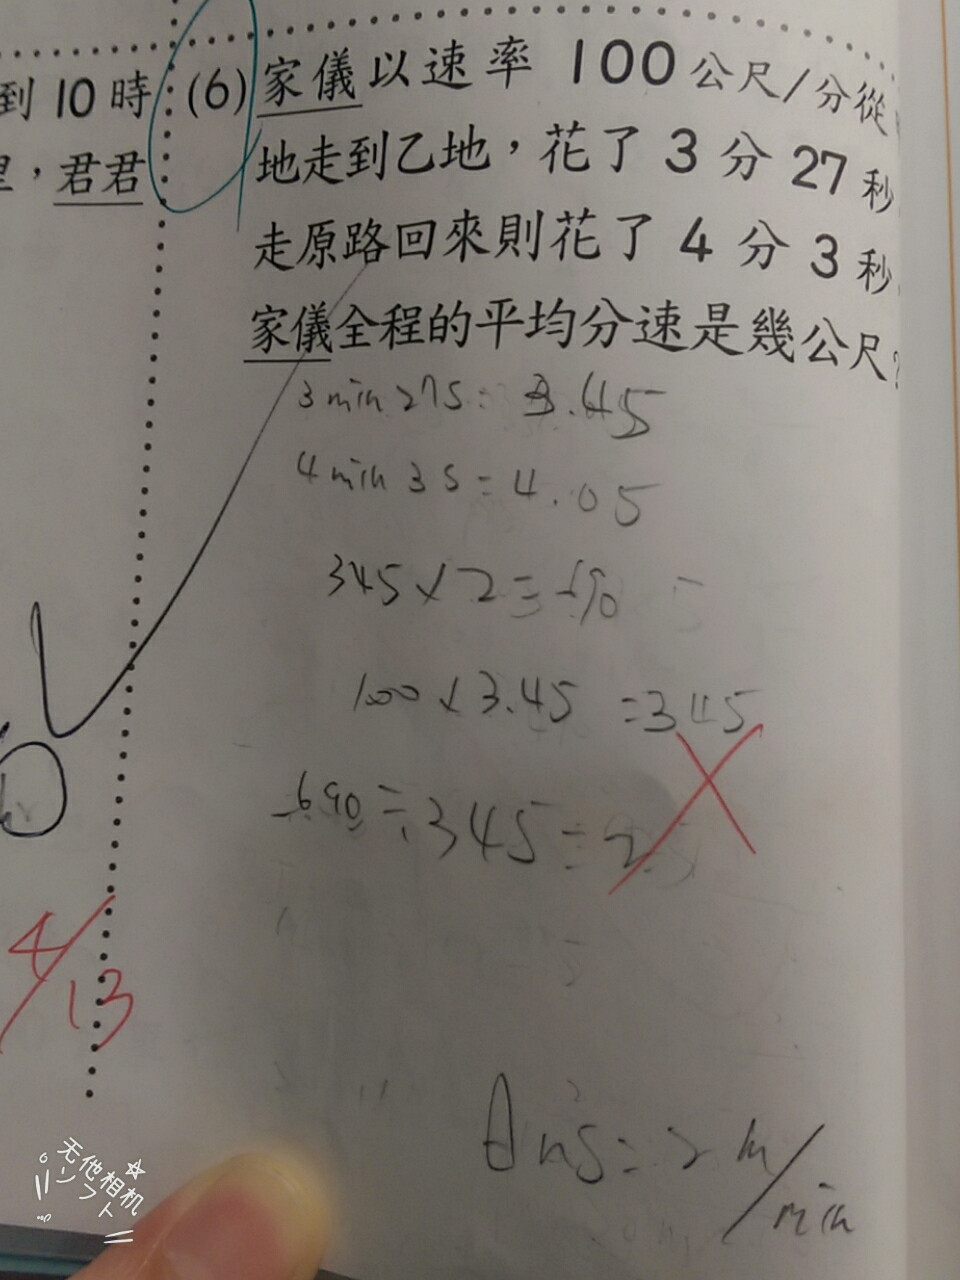 到10時
，君君
(6)家儀以速率 100公尺/分從
地走到乙地，花了3分27秒
走原路回來則花了4分3秒
家儀全程的平均分速是幾公尺?
3 min 27 s = 3.45
4 min 3 s = 4.05
345 × 2 = 690
100 × 3.45 = 345
690 ÷ 345 = 2
4/13
Ans = 2 m/min
无他相机
ソフト